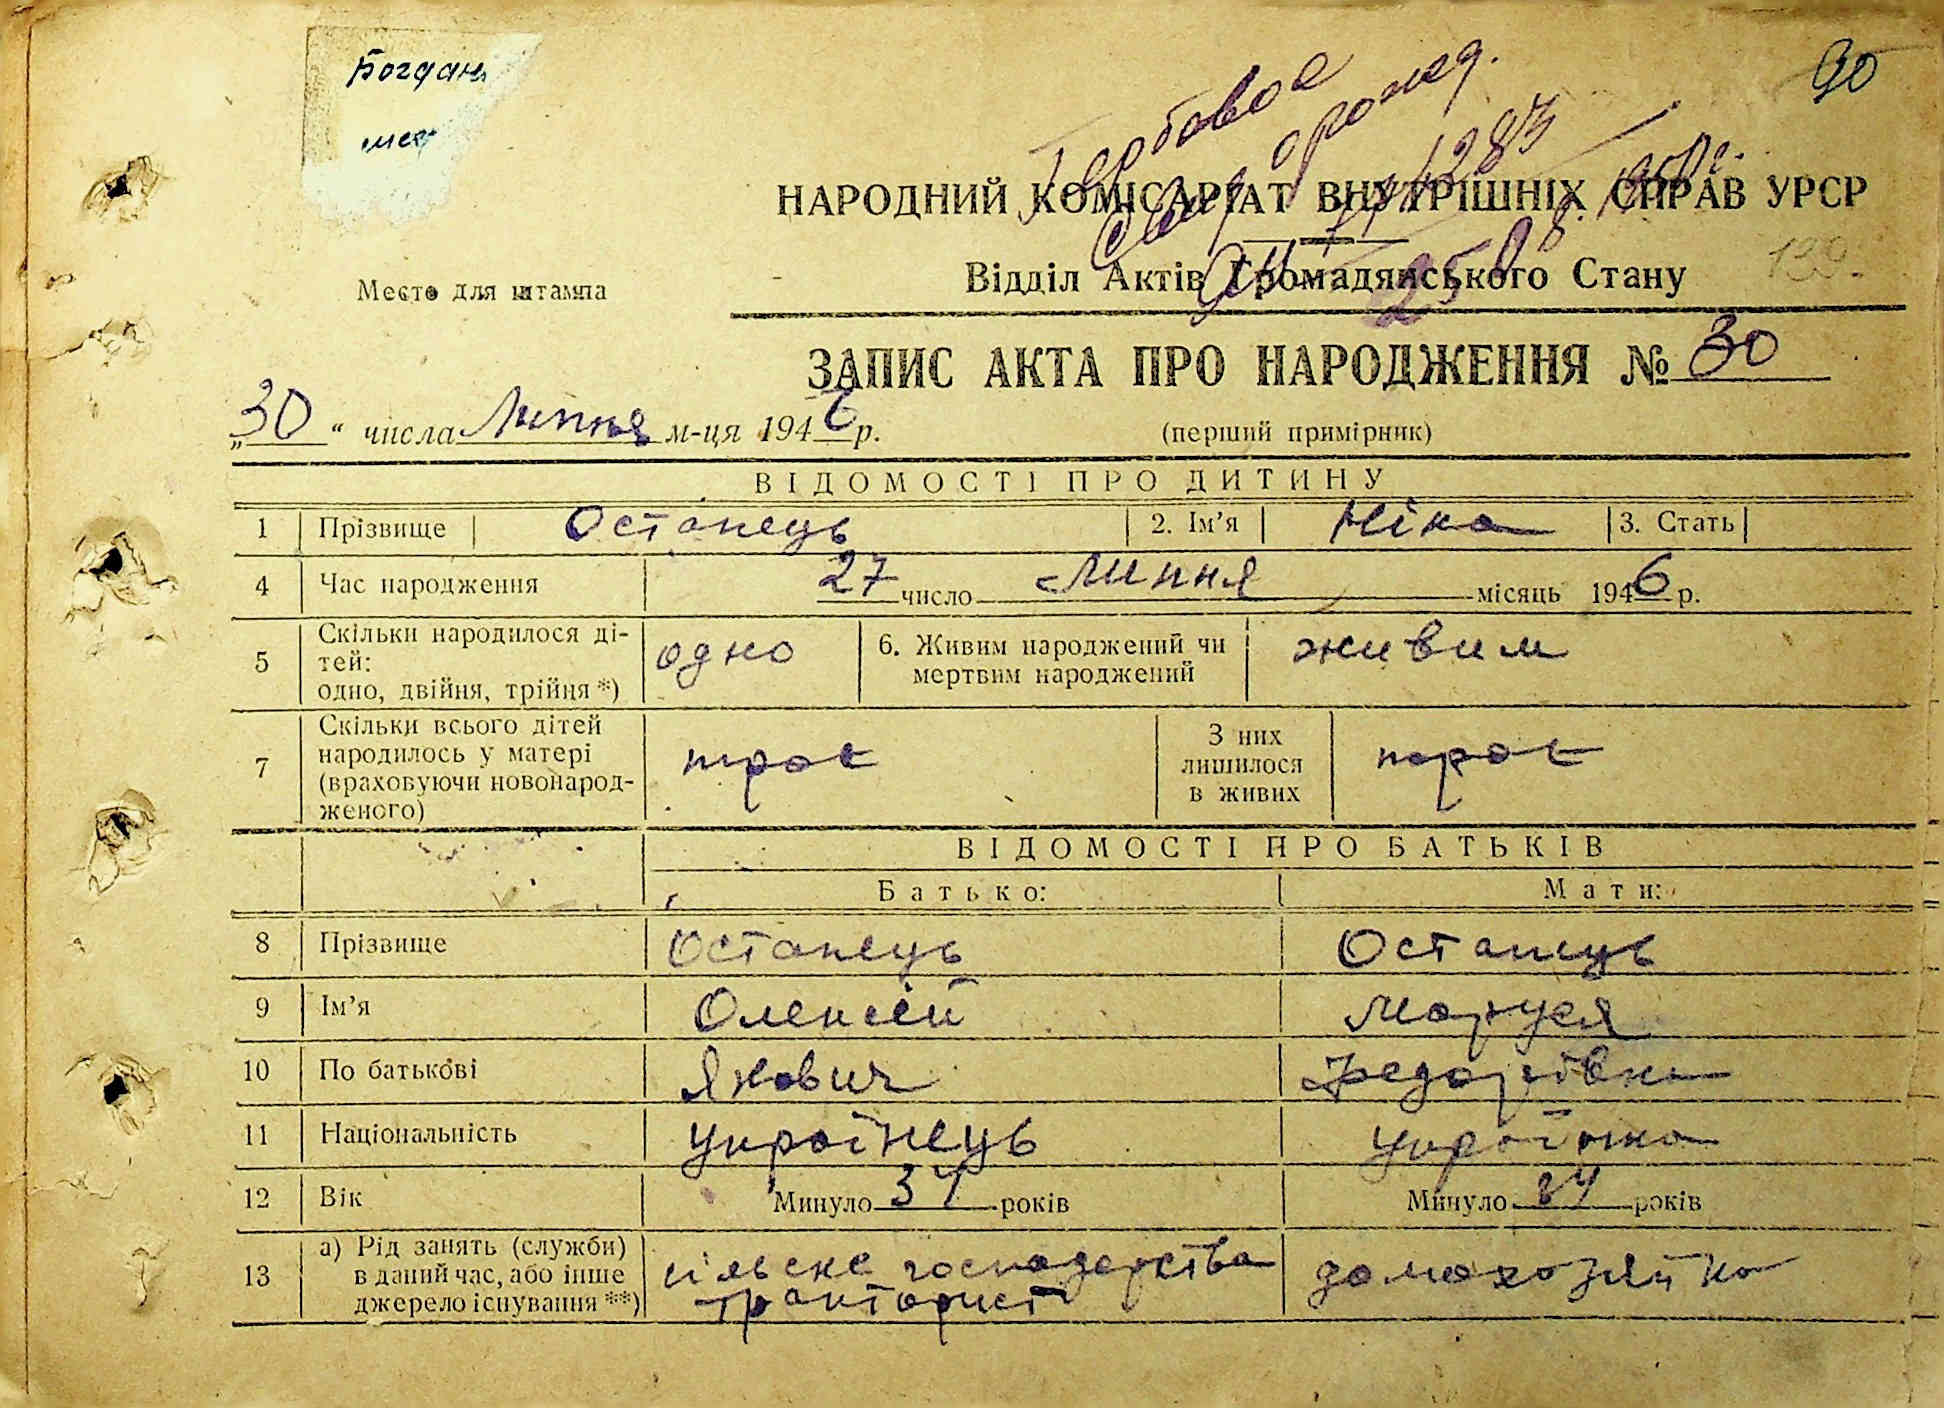 Богдан
90
Гербовое
свид. о рожд.
25
139.
НАРОДНИЙ КОМІСАРІАТ ВНУТРІШНІХ СПРАВ УРСР
Відділ Актів Громадянського Стану
Место для штампа
ЗАПИС АКТА ПРО НАРОДЖЕННЯ № 30
„30“ числа Липня м-ця 1946 р.
(перший примірник)
ВІДОМОСТІ ПРО ДИТИНУ
1 Прізвище Остапець 2. Ім'я Ніна 3. Стать
4 Час народження 27 число Липня місяць 1946 р.
5 Скільки народилося ді-
тей:
одно, двійня, трійня *) одно 6. Живим народжений чи
мертвим народжений живим
7 Скільки всього дітей
народилось у матері
(враховуючи новонарод-
женого) троє З них
лишилося
в живих троє
ВІДОМОСТІ ПРО БАТЬКІВ
Батько: Мати:
8 Прізвище Остапець Остапець
9 Ім'я Олексій Маруся
10 По батькові Якович Федорівна
11 Національність Українець Українка
12 Вік Минуло 34 років Минуло 34 років
13 а) Рід занять (служби)
в даний час, або інше
джерело існування **) сільске господарства
тракторист домохозяйка